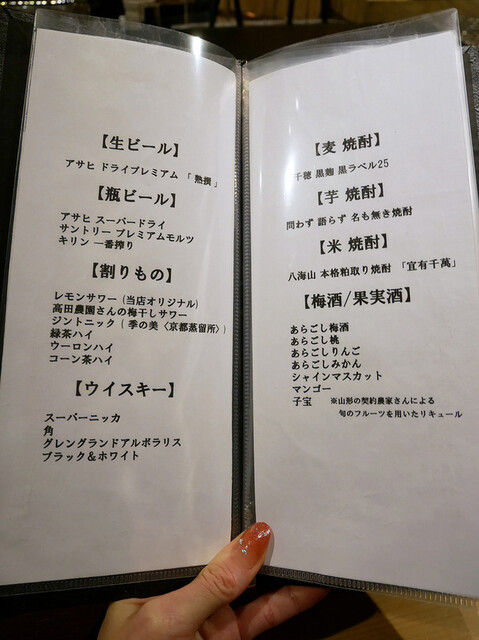 【生ビール】
アサヒ ドライプレミアム 「 熟撰 」
【瓶ビール】
アサヒ スーパードライ
サントリー プレミアムモルツ
キリン 一番搾り
【割りもの】
レモンサワー (当店オリジナル)
高田農園さんの梅干しサワー
ジントニック ( 季の美〈京都蒸留所〉)
緑茶ハイ
ウーロンハイ
コーン茶ハイ
【ウイスキー】
スーパーニッカ
角
グレングランドアルボラリス
ブラック＆ホワイト
【麦 焼酎】
千徳 黒麹 黒ラベル25
【芋 焼酎】
問わず 語らず 名も無き焼酎
【米 焼酎】
八海山 本格粕取り焼酎 「宜有千萬」
【梅酒/果実酒】
あらごし梅酒
あらごし桃
あらごしりんご
あらごしみかん
シャインマスカット
マンゴー
子宝 ※山形の契約農家さんによる
旬のフルーツを用いたリキュール